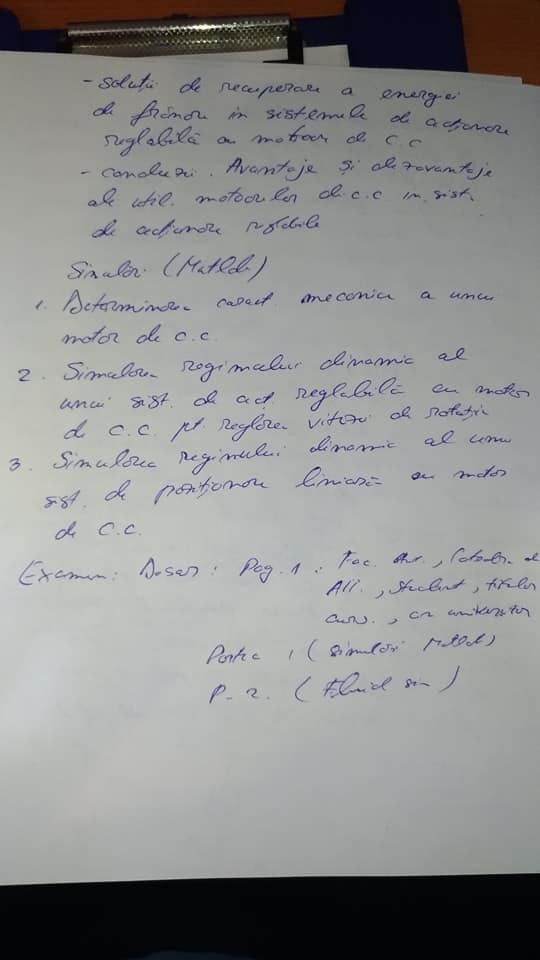 - soluții de recuperare a energiei
de frânare in sistemele de acționare
reglabilă cu motoare de c.c
- concluzii. Avantaje și dezavantaje
ale util. motoarelor de c.c in sist.
de acționare reglabile
Simulări (Matlab)
1. Determinarea caract. mecanice a unui
motor de c.c.
2. Simularea regimului dinamic al
unui sist. de acț. reglabilă cu motor
de c.c. pt. reglarea vitezei de rotație
3. Simularea regimului dinamic al unui
sist. de poziționare liniară cu motor
de c.c.
Examen: Dosar: Pag. 1: Fac.
, student, titular
curs., an universitar
Partea 1 (simulări Matlab)
P-2. (Fluid sim)